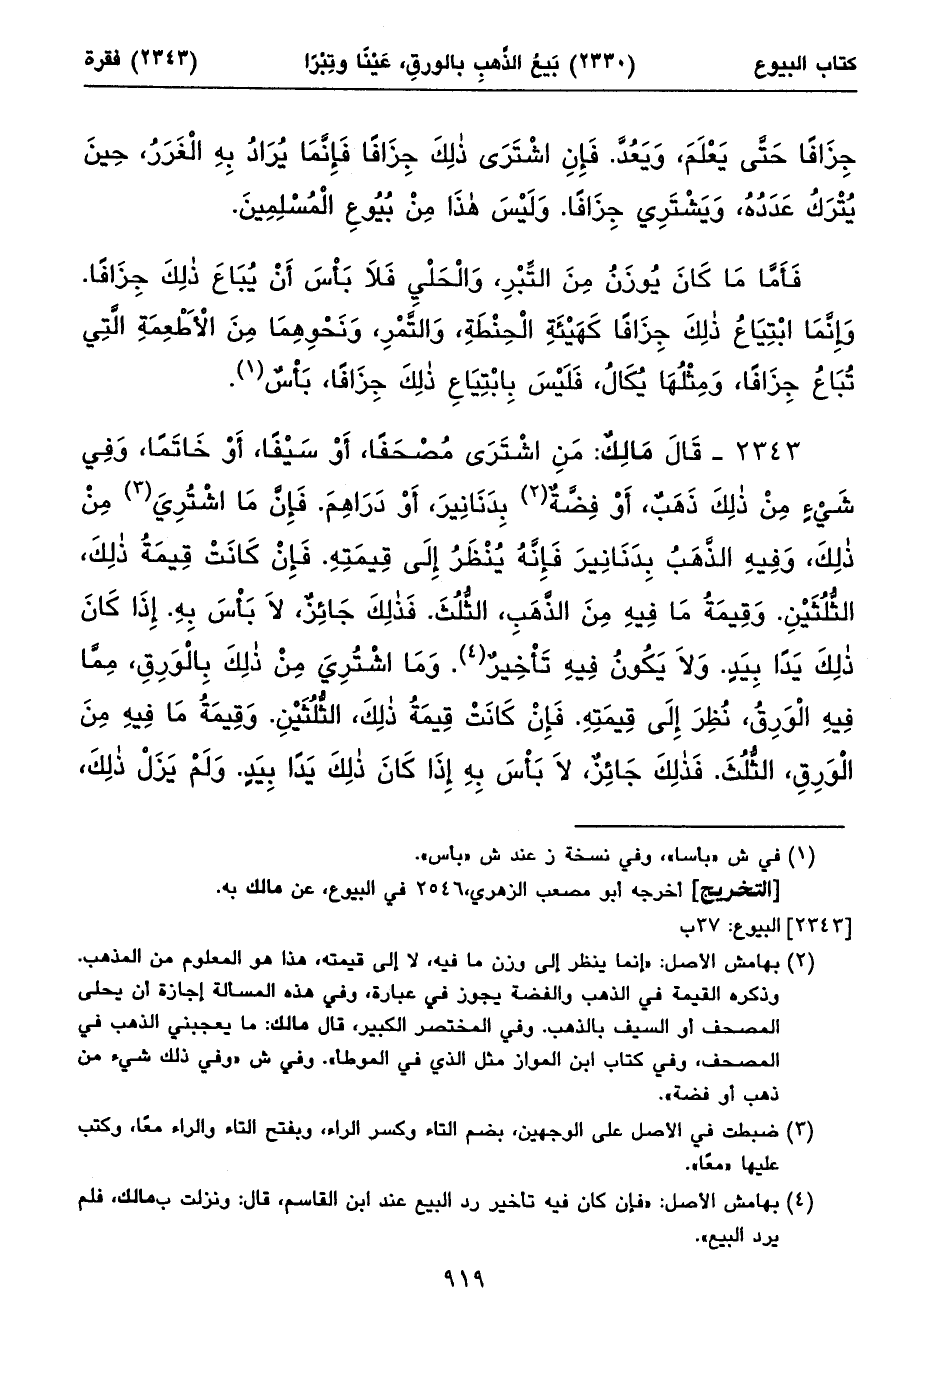 كتاب البيوع (٢٣٣٠) بَيعُ الذَّهبِ بالورقِ، عَيْنًا وتِبْرًا (٢٣٤٣) فقرة
جِزَافًا حَتَّى يَعْلَمَ، وَيَعُدَّ. فَإِنِ اشْتَرَى ذٰلِكَ جِزَافًا فَإِنَّمَا يُرَادُ بِهِ الْغَرَرُ، حِينَ
يُتْرَكُ عَدَدُهُ، وَيَشْتَرِي جِزَافًا. وَلَيْسَ هٰذَا مِنْ بُيُوعِ الْمُسْلِمِينَ.
فَأَمَّا مَا كَانَ يُوزَنُ مِنَ التِّبْرِ، وَالْحَلْيِ فَلاَ بَأْسَ أَنْ يُبَاعَ ذٰلِكَ جِزَافًا.
وَإِنَّمَا ابْتِيَاعُ ذٰلِكَ جِزَافًا كَهَيْئَةِ الْحِنْطَةِ، وَالتَّمْرِ، وَنَحْوِهِمَا مِنَ الْأَطْعِمَةِ الَّتِي
تُبَاعُ جِزَافًا، وَمِثْلُهَا يُكَالُ، فَلَيْسَ بِابْتِيَاعِ ذٰلِكَ جِزَافًا، بَأْسٌ(١).
٢٣٤٣ - قَالَ مَالِكٌ: مَنِ اشْتَرَى مُصْحَفًا، أَوْ سَيْفًا، أَوْ خَاتَمًا، وَفِي
شَيْءٍ مِنْ ذٰلِكَ ذَهَبٌ، أَوْ فِضَّةٌ(٢) بِدَنَانِيرَ، أَوْ دَرَاهِمَ. فَإِنَّ مَا اشْتُرِيَ(٣) مِنْ
ذٰلِكَ، وَفِيهِ الذَّهَبُ بِدَنَانِيرَ فَإِنَّهُ يُنْظَرُ إِلَى قِيمَتِهِ. فَإِنْ كَانَتْ قِيمَةُ ذٰلِكَ،
الثُّلُثَيْنِ. وَقِيمَةُ مَا فِيهِ مِنَ الذَّهَبِ، الثُّلُثَ. فَذٰلِكَ جَائِزٌ، لاَ بَأْسَ بِهِ. إِذَا كَانَ
ذٰلِكَ يَدًا بِيَدٍ. وَلاَ يَكُونُ فِيهِ تَأْخِيرٌ(٤). وَمَا اشْتُرِيَ مِنْ ذٰلِكَ بِالْوَرِقِ، مِمَّا
فِيهِ الْوَرِقُ، نُظِرَ إِلَى قِيمَتِهِ. فَإِنْ كَانَتْ قِيمَةُ ذٰلِكَ، الثُّلُثَيْنِ. وَقِيمَةُ مَا فِيهِ مِنَ
الْوَرِقِ، الثُّلُثَ. فَذٰلِكَ جَائِزٌ، لاَ بَأْسَ بِهِ إِذَا كَانَ ذٰلِكَ يَدًا بِيَدٍ. وَلَمْ يَزَلْ ذٰلِكَ،
(١) في ش «بأسا»، وفي نسخة ز عند ش «بأس».
[التخريج] أخرجه أبو مصعب الزهري،٢٥٤٦ في البيوع، عن مالك به.
[٢٣٤٣] البيوع: ٣٧ب
(٢) بهامش الأصل: «إنما ينظر إلى وزن ما فيه، لا إلى قيمته، هذا هو المعلوم من المذهب.
وذكره القيمة في الذهب والفضة يجوز في عبارة، وفي هذه المسألة إجازة أن يحلى
المصحف أو السيف بالذهب. وفي المختصر الكبير، قال مالك: ما يعجبني الذهب في
المصحف، وفي كتاب ابن المواز مثل الذي في الموطأ». وفي ش «وفي ذلك شيء من
ذهب أو فضة».
(٣) ضبطت في الأصل على الوجهين، بضم التاء وكسر الراء، وبفتح التاء والراء معًا، وكتب
عليها «معًا».
(٤) بهامش الأصل: «فإن كان فيه تأخير رد البيع عند ابن القاسم، قال: ونزلت بمالك، فلم
يرد البيع».
٩١٩